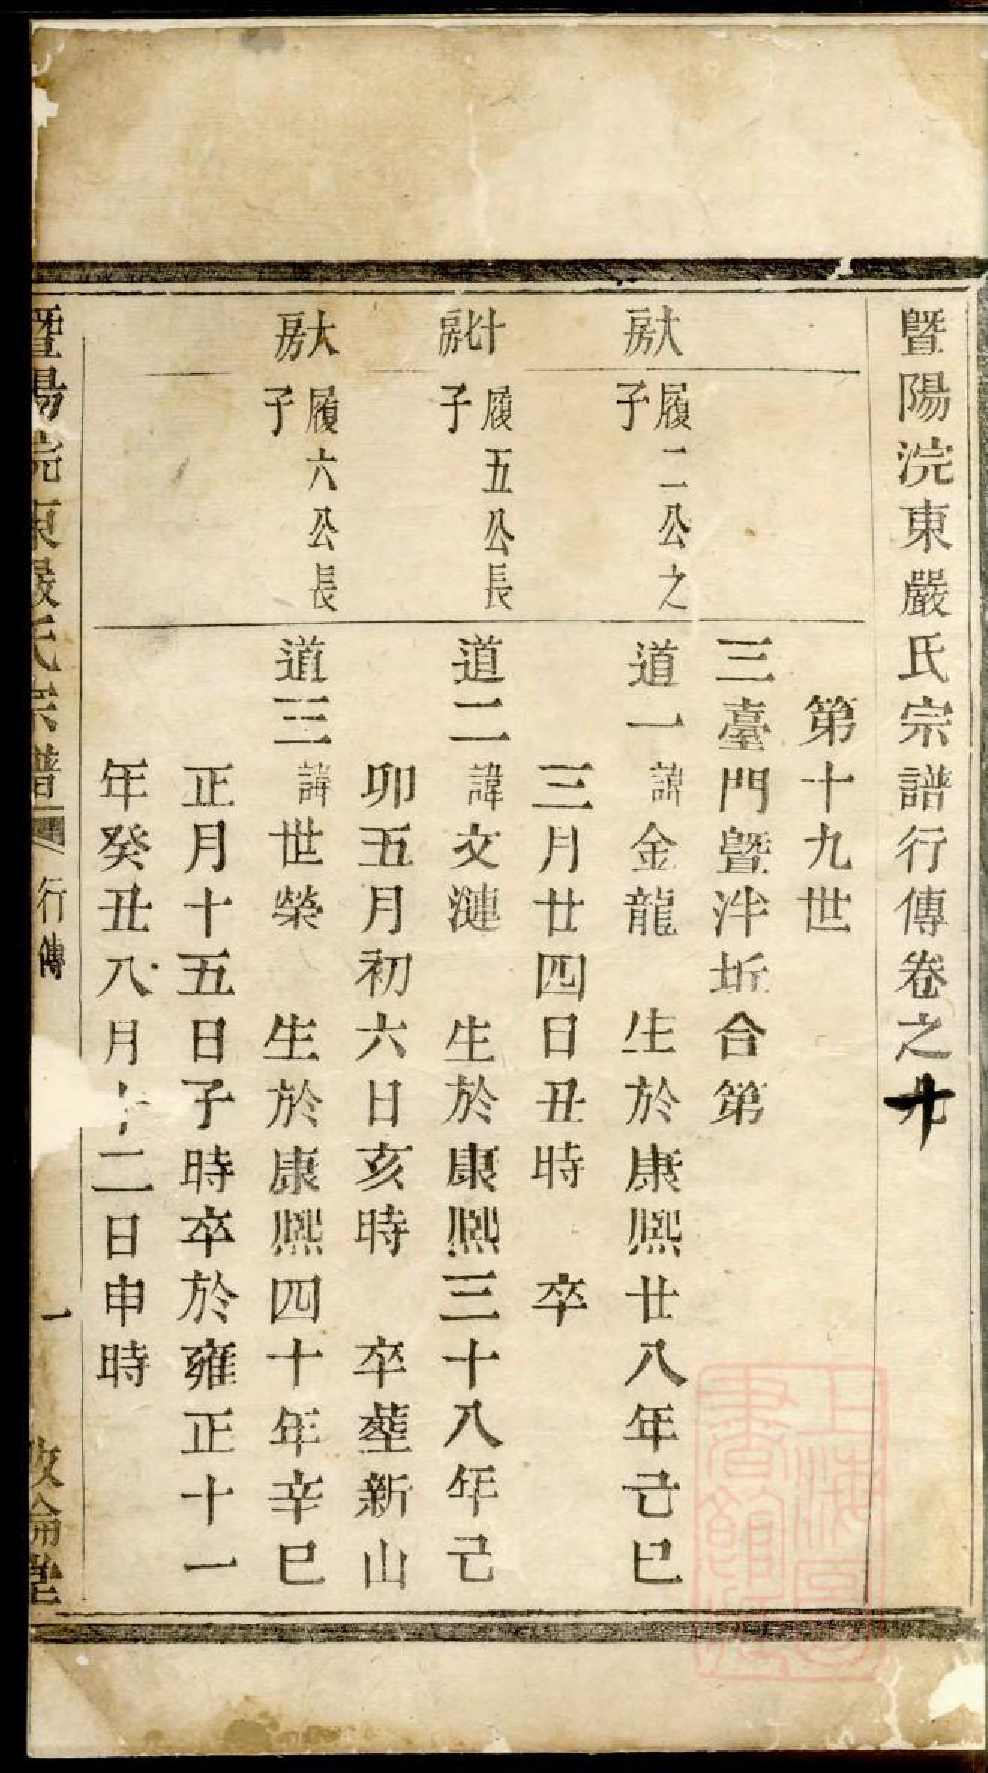 暨陽浣東嚴氏宗譜行傳卷之十
第十九世
三臺門暨泮坵合第
大房
履二公之子
道一 諱金龍 生於康熈廿八年己巳
三月廿四日丑時 卒
履五公長子
道二 諱文漣 生於康熈三十八年己
卯五月初六日亥時 卒塟新山
大房
履六公長子
道三 諱世榮 生於康熈四十年辛巳
正月十五日子時卒於雍正十一
年癸丑八月二日申時
暨陽浣東嚴氏宗譜 行傳 一 敘倫堂
上海圖書館藏